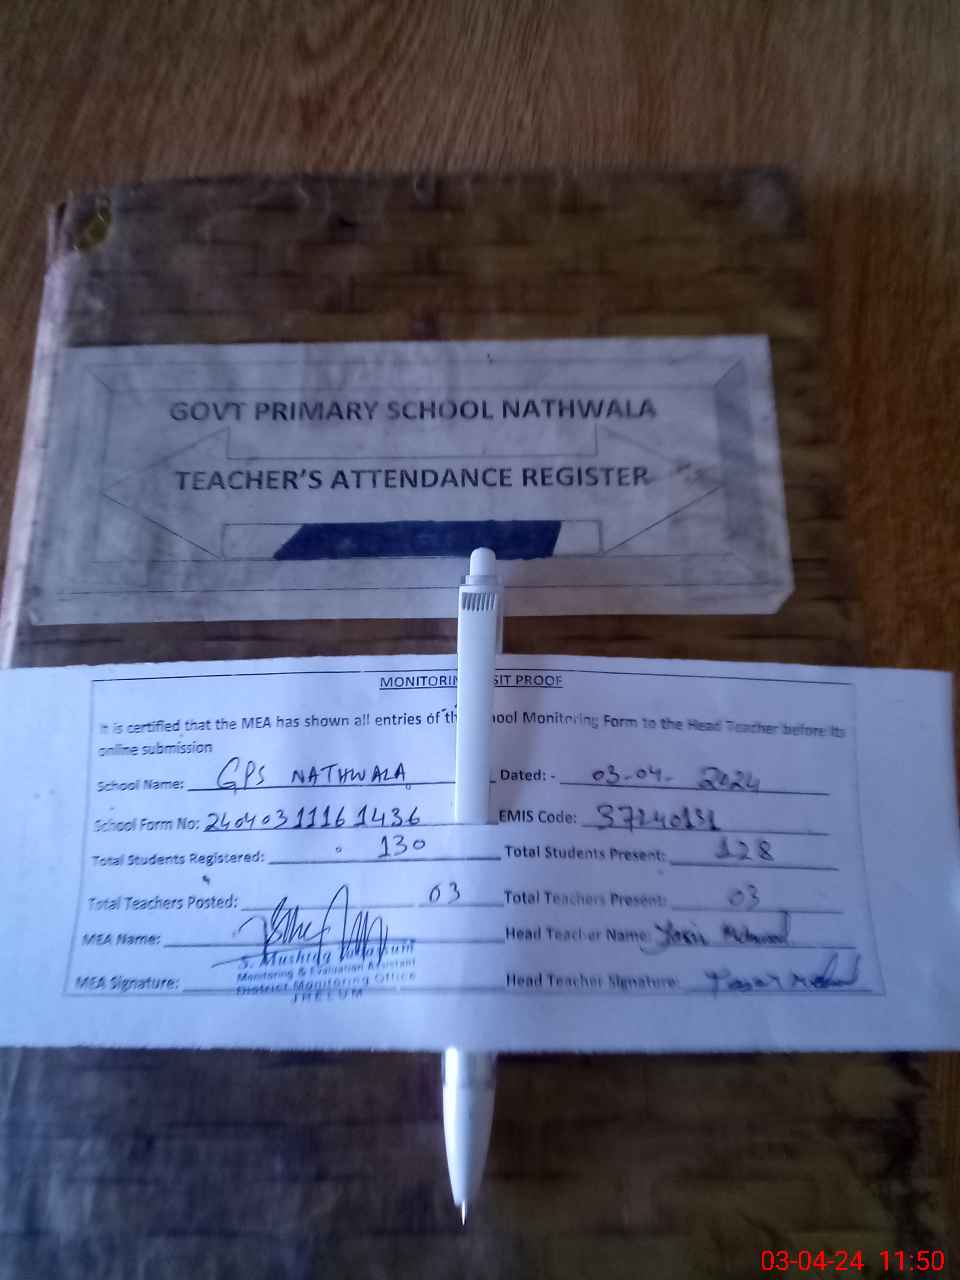 GOVT PRIMARY SCHOOL NATHWALA
TEACHER'S ATTENDANCE REGISTER
MONITORIN SIT PROOF
It is certified that the MEA has shown all entries of th ool Monitoring Form to the Head Teacher before its
online submission
School Name: GPS NATHWALA Dated: - 03-04- 2024
School Form No: 2404031116 1436 EMIS Code: 37240131
Total Students Registered: 130 Total Students Present: 128
Total Teachers Posted: 03 Total Teachers Present: 03
MEA Name: Head Teacher Name: Yasir Mehmood
S. Mushidq
Monitoring & Evaluation Assistant
MEA Signature: Head Teacher Signature:
District Monitoring Office
JHELUM
03-04-24 11:50